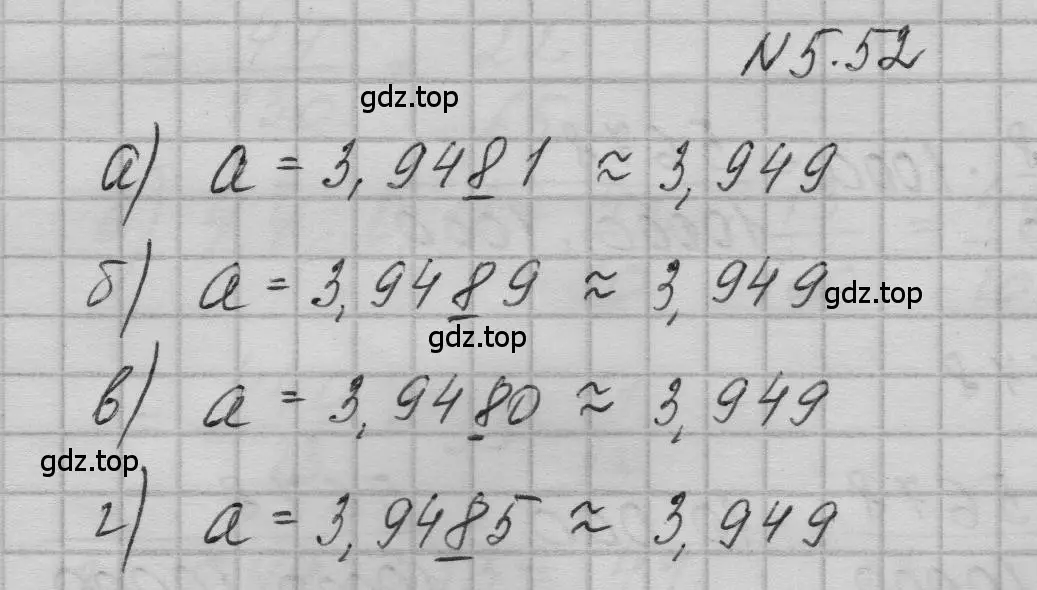 N 5.52
gdz.top
а) a = 3,9481 ≈ 3,949
б) a = 3,9489 ≈ 3,949 gdz.top
gdz.top
в) a = 3,9480 ≈ 3,949
gdz.top
г) a = 3,9485 ≈ 3,949